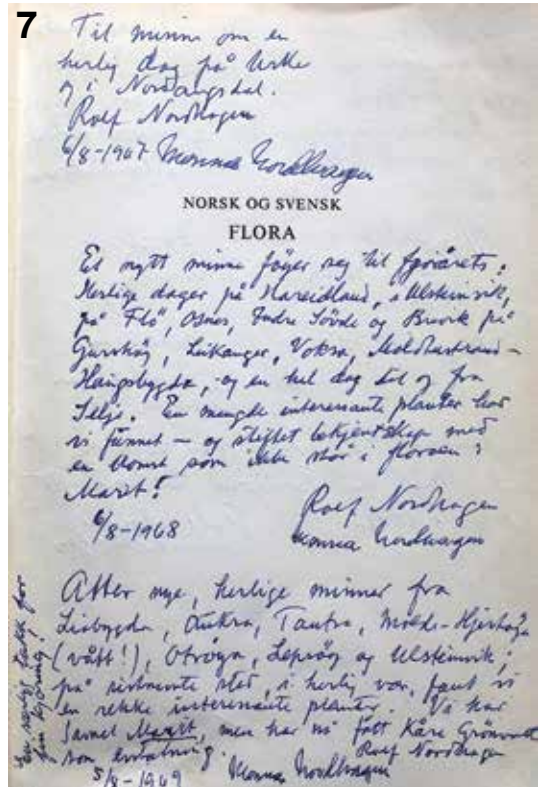 7
Til minne om en
herlig dag på Urke
og i Norangsdal.
Rolf Nordhagen
6/8-1967 Monna Nordhagen
NORSK OG SVENSK
FLORA
Et nytt minne föyer seg til fjorårets:
Herlige dager på Hareidland, i Ulsteinvik,
på Flö, Osnes, Indre Sövde og Brvik på
Gursköy, Leikanger, Voksa, Moldtustrand-
Haugsbygda, og en hel dag til og fra
Selje. En mengde interessante planter har
vi funnet – og stiftet bekjentskap med
en blomst som ikke står i floraen:
Marit!
6/8-1968
Rolf Nordhagen
Monna Nordhagen
Atter nye, herlige minner fra
Liabygda, Aukra, Tautra, Molde-Hjertöya
(vått!), Otröya, Lepsöy og Ulsteinvik;
på sistnevnte sted, i herlig vær, fant vi
en rekke interessante planter. Vi har
savnet Marit, men har nå fått Kåre Grönvold
som erstatning.
Rolf Nordhagen
5/8-1969 Monna Nordhagen
En særlig takk for
fin kjöring!